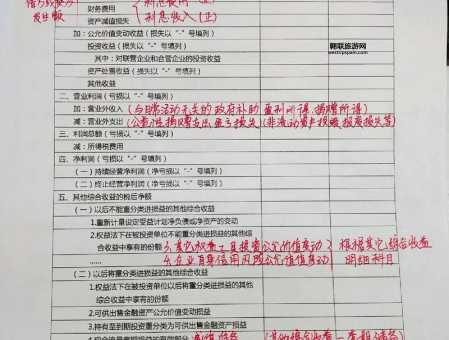 借方或贷方 利息费用(正)
发生额 财务费用 利息收入(正)
资产减值损失
加：公允价值变动收益（损失以“-”号填列）
投资收益（损失以“-”号填列）
其中：对联营企业和合营企业的投资收益
资产处置收益（损失以“-”号填列）
其他收益
二、营业利润（亏损以“-”号填列）
加：营业外收入（与日常活动无关的政府补助 盘利所得、捐赠所得）
减：营业外支出（公益性捐赠支出 盘亏损失（非流动资产毁损报废损失等）
三、利润总额（亏损以“-”号填列）
减：所得税费用
四、净利润（亏损以“-”号填列）
（一）持续经营净利润（净亏损以“-”号填列）
（二）终止经营净利润（净亏损以“-”号填列）
五、其他综合收益的税后净额
（一）以后不能重分类进损益的其他综合收益
1.重新计量设定受益计划净负债或净资产的变动
2.权益法下在被投资单位不能重分类进损益的其他综
合收益中享有的份额 3、其它权益工具投资公允价值变动 根据其它综合收益
...... 4、企业自身信用风险公允价值变动 明细科目
（二）以后将重分类进损益的其他综合收益
1.权益法下在被投资单位以后将重分类进损益的其他
综合收益中享有的份额
2.可供出售金融资产公允价值变动损益
3.持有至到期投资重分类为可供出售金融资产损益
韩联旅游网